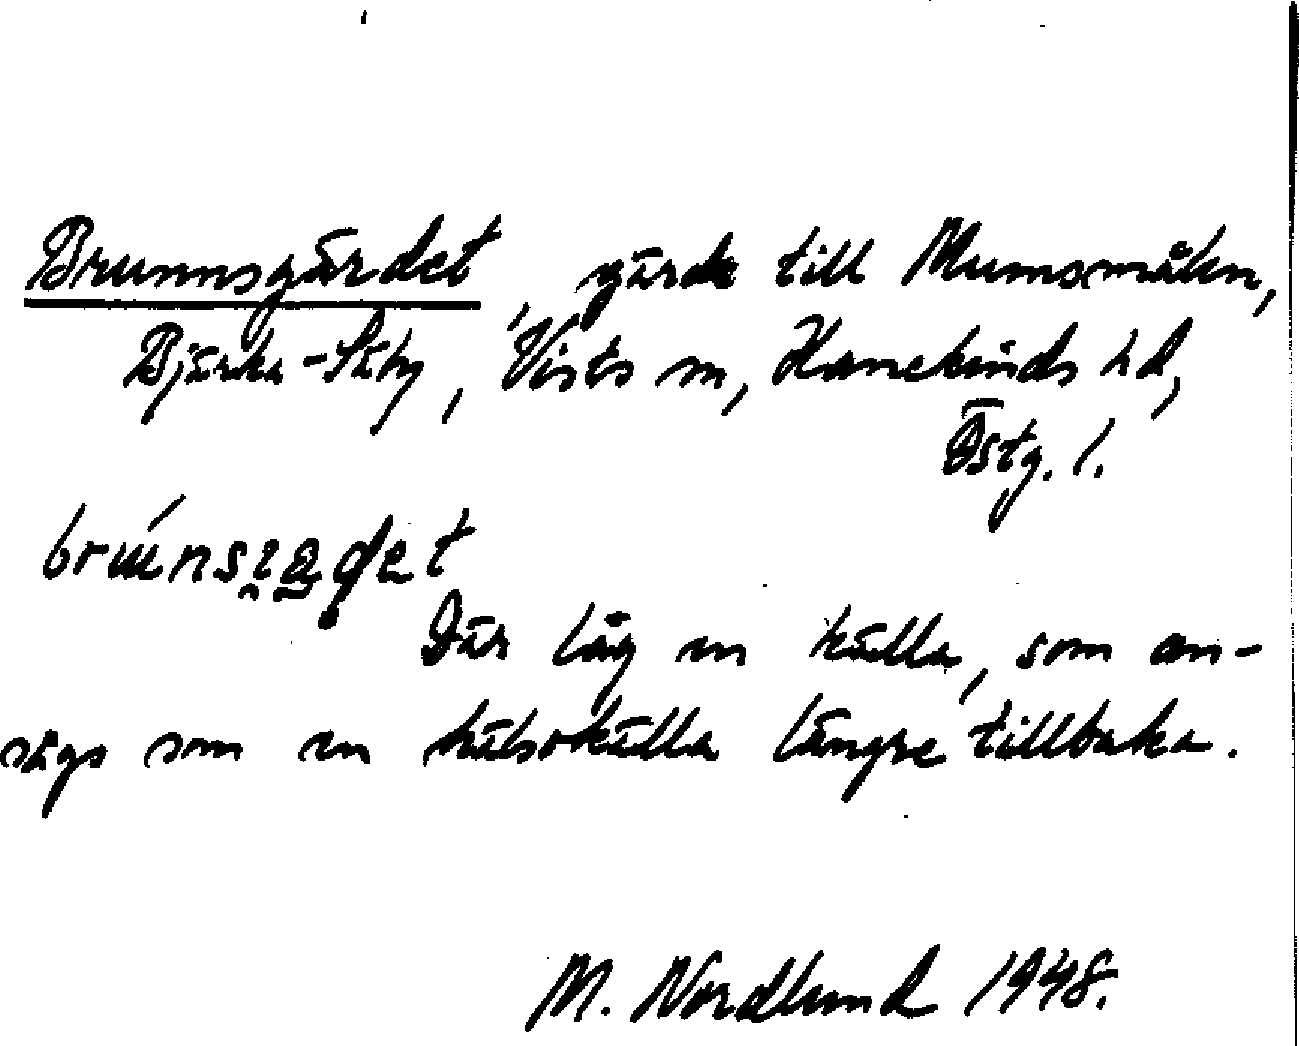 Brunnsgärdet, gärde till Mumsmålen,
Bjärka-Säby, Vists sn, Hanekinds hd,
Östg. l.
Där låg en källa, som an-
sågs som en hälsokälla längre tillbaka.
M. Nordlund 1948.